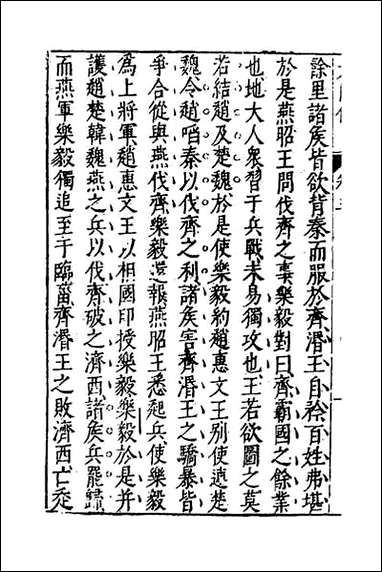 餘里諸矦皆欲背秦而服於齊湣王自矜百姓弗堪
於是燕昭王問伐齊之事樂毅對曰齊霸國之餘業
也地大人衆習于兵戰未易獨攻也王若欲圖之莫
若結趙及楚魏於是使樂毅約趙惠文王別使連楚
魏令趙啗秦以伐齊之利諸矦害齊湣王之驕暴皆
爭合從與燕伐齊樂毅還報燕昭王悉起兵使樂毅
為上將軍趙惠文王以相國印授樂毅樂毅於是并
護趙楚韓魏燕之兵以伐齊破之濟西諸矦兵罷歸
而燕軍樂毅獨追至于臨菑齊湣王之敗濟西亡走